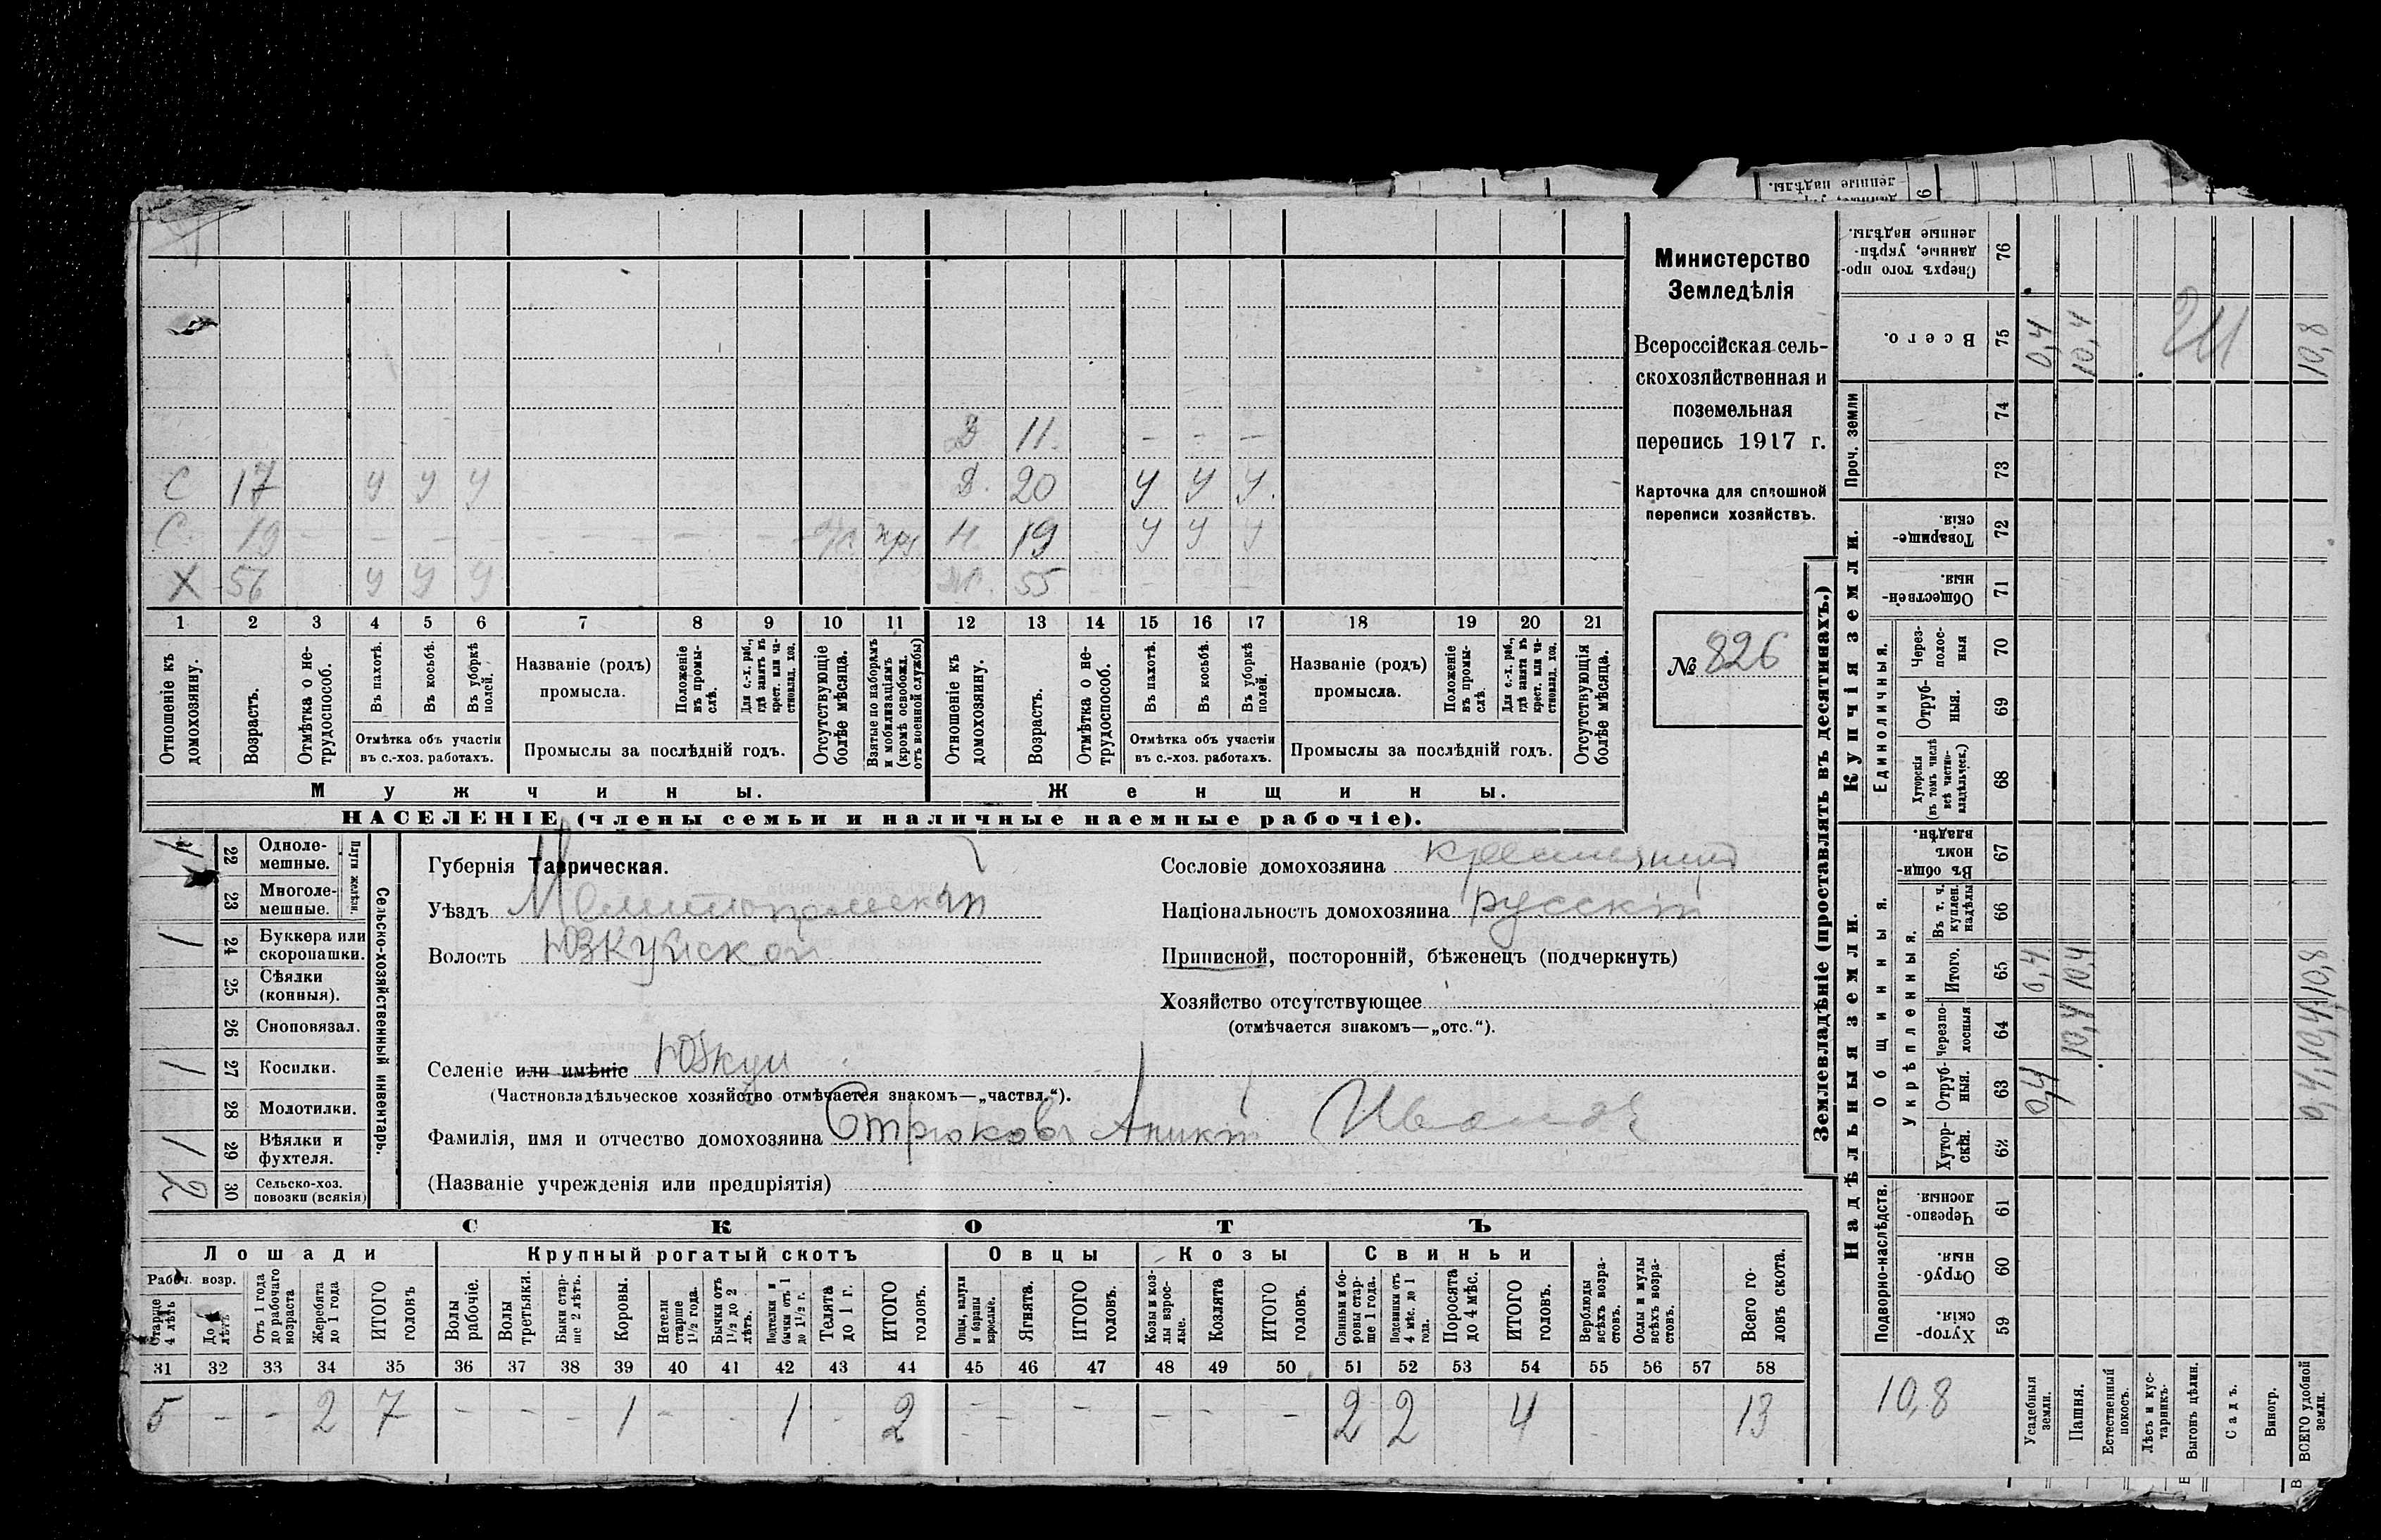 ленные надѣлы.
6
Д 11. - - -
С 17 У У У Д. 20 У У У.
С. 19 - - - - - - - - н. 19 У У У
Х 56 У У У 55 - - -
1 2 3 4 5 6 7 8 9 10 11 12 13 14 15 16 17 18 19 20 21
Отношеніе къ домохозяину.
Возрастъ.
Отмѣтка о нетрудоспособ.
Въ пахотѣ.
Въ косьбѣ.
Въ уборкѣ полей.
Отмѣтка объ участіи
въ с.-хоз. работахъ.
Названіе (родъ)
промысла.
Положеніе въ промыслѣ.
Для с.-х. раб., гдѣ занятъ въ крест. или частновлад. хоз.
Промыслы за послѣдній годъ.
Отсутствующіе болѣе мѣсяца.
Взятые по наборамъ и мобилизаціямъ (кромѣ освобожд. отъ военной службы)
Отношеніе къ домохозяину.
Возрастъ.
Отмѣтка о нетрудоспособ.
Въ пахотѣ.
Въ косьбѣ.
Въ уборкѣ полей.
Отмѣтка объ участіи
въ с.-хоз. работахъ.
Названіе (родъ)
промысла.
Положеніе въ промыслѣ.
Для с.-х. раб., гдѣ занята въ крест. или частновлад. хоз.
Промыслы за послѣдній годъ.
Отсутствующія болѣе мѣсяца.
Мужчины. Женщины.
НАСЕЛЕНІЕ (члены семьи и наличные наемные рабочіе).
Министерство
Земледѣлія
Всероссійская сель-
скохозяйственная и
поземельная
перепись 1917 г.
Карточка для сплошной
переписи хозяйствъ.
№ 826
Сельско-хозяйственный инвентарь.
Плуги желѣзн.
22 Одноле-
мешные.
23 Многоле-
мешные.
1 24 Буккера или
скоропашки.
25 Сѣялки
(конныя).
26 Сноповязал.
1 27 Косилки.
28 Молотилки.
1 29 Вѣялки и
фухтеля.
2 30 Сельско-хоз.
повозки (всякія)
Губернія Таврическая.
Уѣздъ Мелитопольскій
Волость Юзкуйской
Селеніе или имѣніе Юзкуи
(Частновладѣльческое хозяйство отмѣчается знакомъ—„частвл.“).
Фамилія, имя и отчество домохозяина Стрюковъ Аникій Иванов
(Названіе учрежденія или предпріятія)
Сословіе домохозяина крестьянинъ
Національность домохозяина русскій
Приписной, посторонній, бѣженецъ (подчеркнуть)
Хозяйство отсутствующее
(отмѣчается знакомъ—„отс.“).
СКОТЪ
Лошади Крупный рогатый скотъ Овцы Козы Свиньи
Рабоч. возр.
Старше 4 лѣтъ
До 4 лѣтъ
Отъ 1 года до рабочаго возраста
Жеребята до 1 года
ИТОГО головъ
Волы рабочіе.
Волы третьяки.
Быки старше 2 лѣтъ.
Коровы.
Нетели старше 1½ года.
Бычки отъ 1½ до 2 лѣтъ.
Подтелки и бычки отъ 1 до 1½ г.
Телята до 1 г.
ИТОГО головъ.
Овцы, валухи и бараны взрослые.
Ягнята.
ИТОГО головъ.
Козы и козлы взрослые.
Козлята
ИТОГО головъ.
Свиньи и боровы старше 1 года.
Подсвинки отъ 4 мѣс. до 1 года.
Поросята до 4 мѣс.
ИТОГО головъ.
Верблюды всѣхъ возрастовъ.
Ослы и мулы всѣхъ возрастовъ.
Всего головъ скота.
31 32 33 34 35 36 37 38 39 40 41 42 43 44 45 46 47 48 49 50 51 52 53 54 55 56 57 58
5 - - 2 7 - - - 1 - - 1 - 2 - - - - - - 2 2 4 - 13
Землевладѣніе (проставлять въ десятинахъ.)
Надѣльныя земли. Купчія земли.
Подворно-наслѣдств.
Общинныя.
Укрѣпленныя.
Единоличныя.
Проч. земли
Хуторскія. 59
Отрубныя. 60
Черезполосныя. 61
Хуторскія. 62
Отрубныя. 63 0,4
Черезполосныя 64 10,4
Итого. 65 0,4 10,4 10,8
Въ т. ч. куплен. надѣлы 66
Въ общинномъ владѣн. 67
Хуторскія (въ томъ числѣ всѣ частновладѣльческ.) 68
Отрубныя. 69
Черезполосныя 70
Общественныя. 71
Товарищескія. 72
73
74
Всего. 75 0,4 10,4 10,8
Сверхъ того проданные, укрѣпленные надѣлы. 76
10,8
Усадебныя земли.
Пашня.
Естественный покосъ.
Лѣсъ и кустарникъ.
Выгонъ цѣлин.
Садъ.
Виногр.
ВСЕГО удобной земли.